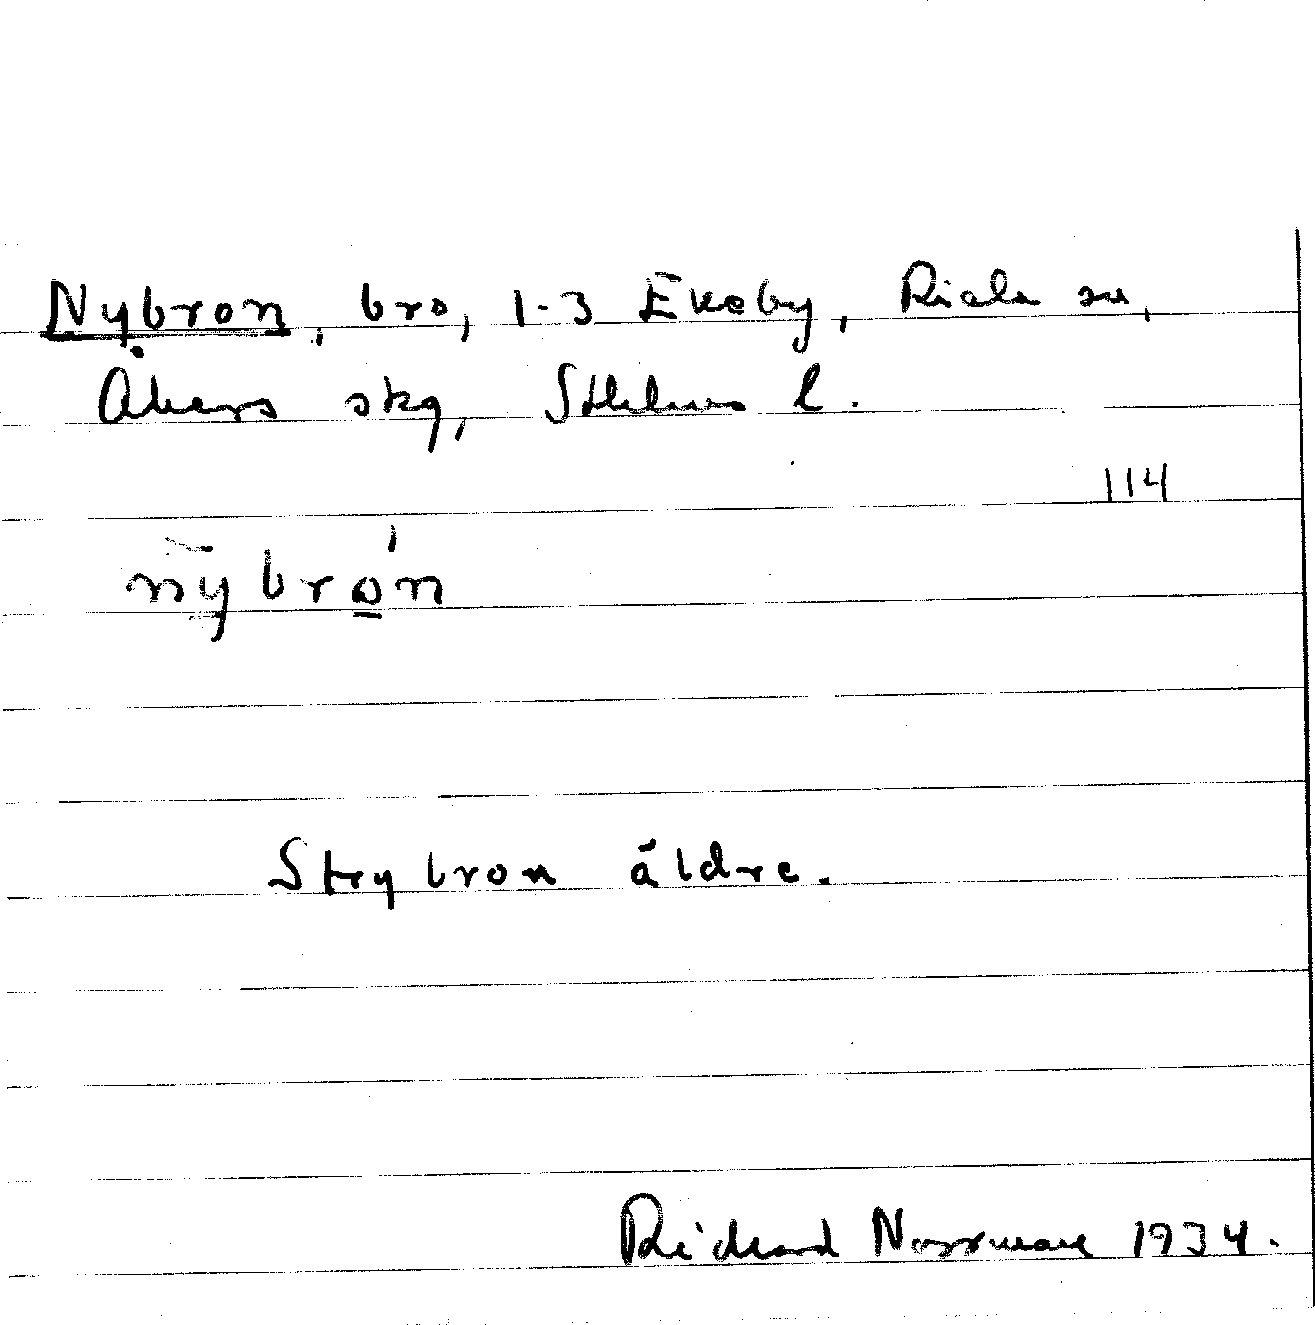 Nybron, bro, 1-3 Ekeby, Riala sn,
Åkers skg, Sthlms l.
114
nybrón
Strybron äldre.
Richard Norrman 1934.